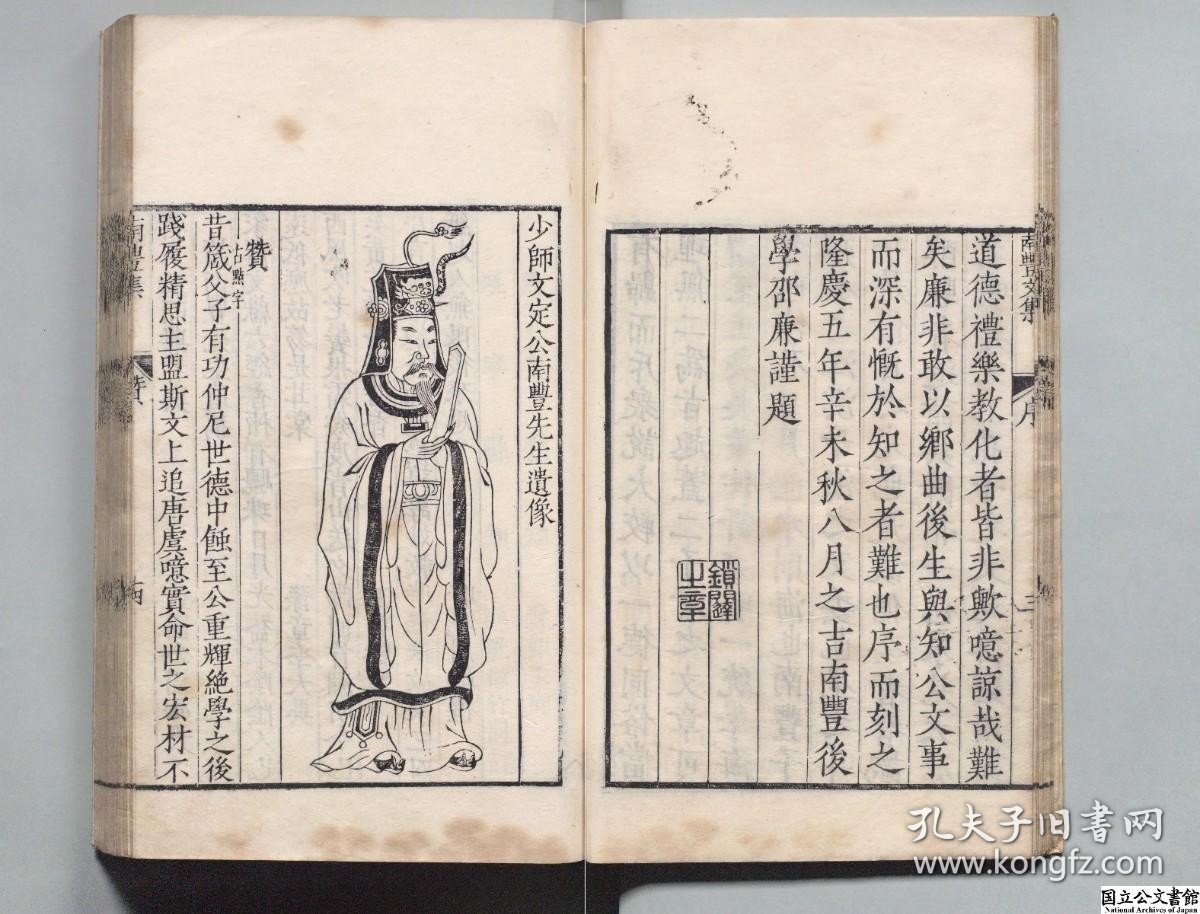 南豐文集
序
道德禮樂教化者皆非歟噫諒哉難
矣廉非敢以鄉曲後生與知公文事
而深有慨於知之者難也序而刻之
隆慶五年辛未秋八月之吉南豐後
學邵廉謹題
鎖闥
之章
少師文定公南豐先生遺像
贊
古點字
昔箴父子有功仲尼世德中蝕至公重輝絕學之後
踐履精思主盟斯文上追唐虞噫實命世之宏材不
南豐集
贊
孔夫子旧書网
www.kongfz.com
国立公文書館
National Archives of Japan